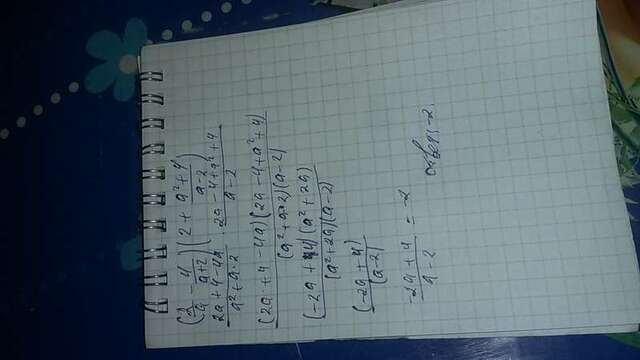 (2/a - 4/(a+2))(2 + (a²+4)/(a-2))
(2a+4-4a)/(a²+a·2) · (2a-4+a²+4)/(a-2)
(2a+4-4a)(2a-4+a²+4)/(a²+a·2)(a-2)
(-2a+4)(a²+2a)/(a²+2a)(a-2)
(-2a+4)/(a-2)
(-2a+4)/(a-2) = -2
Ответ: -2.